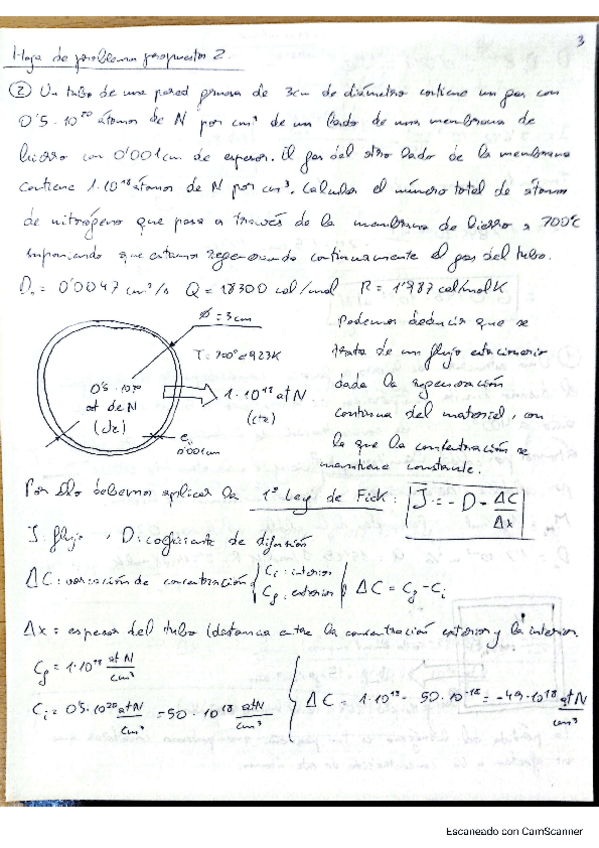 3
Hoja de problemas propuestos 2
② Un tubo de una pared gruesa de 3cm de diámetro contiene un gas con
0'5·10²⁰ átomos de N por cm³ de un lado de una membrana de
hierro con 0'001cm de espesor. El gas del otro lado de la membrana
contiene 1·10¹⁸ átomos de N por cm³. Calcular el número total de átomos
de nitrógeno que pasa a través de la membrana de hierro a 700ºC
suponiendo que estamos regenerando continuamente el gas del tubo.
D₀ = 0'0047 cm²/s Q = 18300 cal/mol R = 1'987 cal/molK
Ø = 3cm
T = 700ºC = 923K
0'5·10²⁰
at de N
(cte)
1·10¹⁸ at N
(cte)
e
0'001cm
Podemos deducir que se
trata de un flujo estacionario
dada la regeneración
continua del material, con
la que la concentración se
mantiene constante.
Por ello debemos aplicar la 1ª Ley de Fick: J = -D · ΔC/Δx
J: flujo, D: coeficiente de difusión
ΔC: variación de concentración { Ci: interior
Cg: exterior } ΔC = Cg - Ci
Δx = espesor del tubo (distancia entre la concentración exterior y la interior.
Cg = 1·10¹⁸ at N/cm³
Ci = 0'5·10²⁰ at N/cm³ = 50·10¹⁸ at N/cm³
ΔC = 1·10¹⁸ - 50·10⁻¹⁸ = -49·10¹⁸ at N/cm³
Escaneado con CamScanner